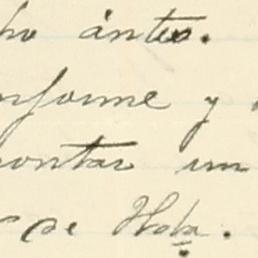 ho ántes.
nforme y
contar un
de Hoba.